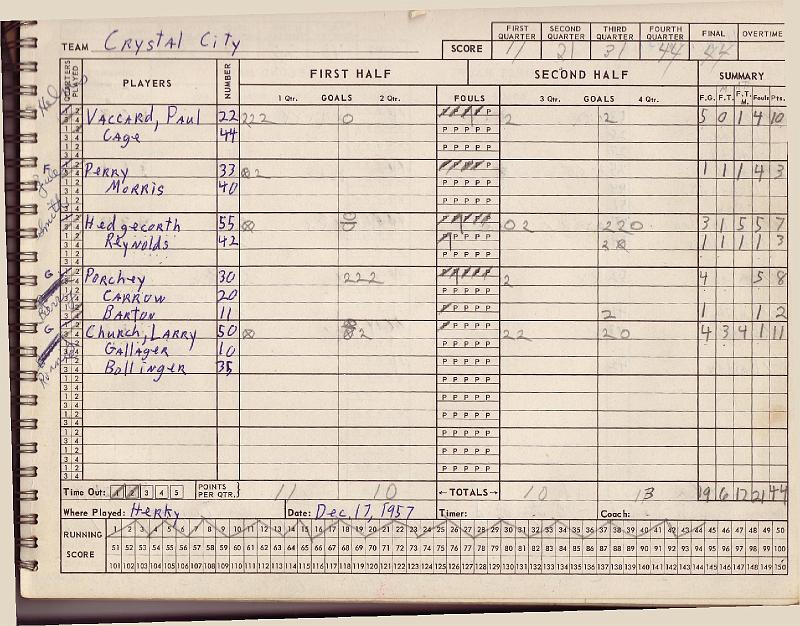 TEAM Crystal City
SCORE
FIRST QUARTER 11
SECOND QUARTER 21
THIRD QUARTER 31
FOURTH QUARTER 44
FINAL 44
OVERTIME
QUARTERS PLAYED PLAYERS NUMBER FIRST HALF SECOND HALF SUMMARY
1 Qtr. GOALS 2 Qtr. FOULS 3 Qtr. GOALS 4 Qtr. F.G. F.T. F.T. M. Fouls Pts.
Vaccard, Paul 22 222 0 2 2 5 0 1 4 10
Cage 44
Perry 33 2 1 1 1 4 3
Morris 40
Hedgecorth 55 0 2 2 2 0 3 1 5 5 7
Reynolds 42 2 1 1 1 1 3
Porchey 30 222 2 4 5 8
Carrow 20
Barton 11 2 1 1 2
Church, Larry 50 2 22 2 0 4 3 4 1 11
Gallager 10
Bollinger 35
Time Out: 1 2 3 4 5 POINTS PER QTR. 11 10 ←TOTALS→ 10 13 19 6 12 21 44
Where Played: Herky Date: Dec. 17, 1957 Timer: Coach:
RUNNING 1 2 3 4 5 6 7 8 9 10 11 12 13 14 15 16 17 18 19 20 21 22 23 24 25 26 27 28 29 30 31 32 33 34 35 36 37 38 39 40 41 42 43 44 45 46 47 48 49 50
SCORE 51 52 53 54 55 56 57 58 59 60 61 62 63 64 65 66 67 68 69 70 71 72 73 74 75 76 77 78 79 80 81 82 83 84 85 86 87 88 89 90 91 92 93 94 95 96 97 98 99 100
101 102 103 104 105 106 107 108 109 110 111 112 113 114 115 116 117 118 119 120 121 122 123 124 125 126 127 128 129 130 131 132 133 134 135 136 137 138 139 140 141 142 143 144 145 146 147 148 149 150